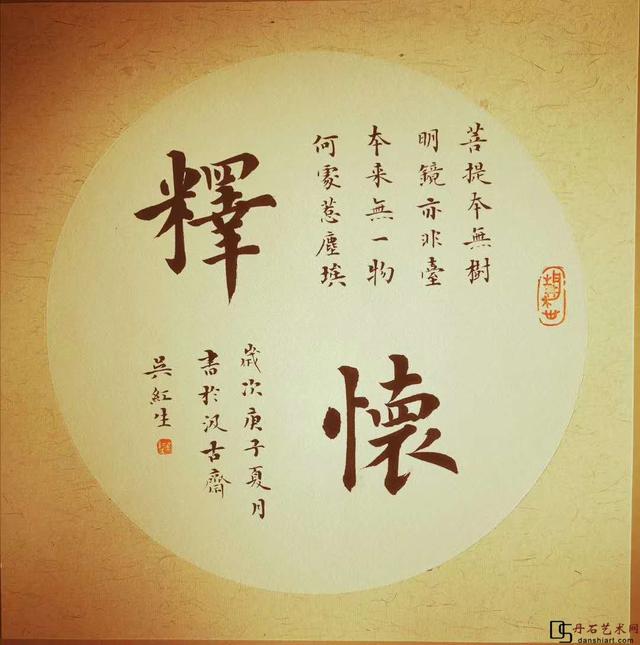 菩提本無樹
明鏡亦非臺
本来無一物
何處惹塵埃
釋懷
歲次庚子夏月
書於汲古齋
吳紅生
丹石艺术网
danshiart.com